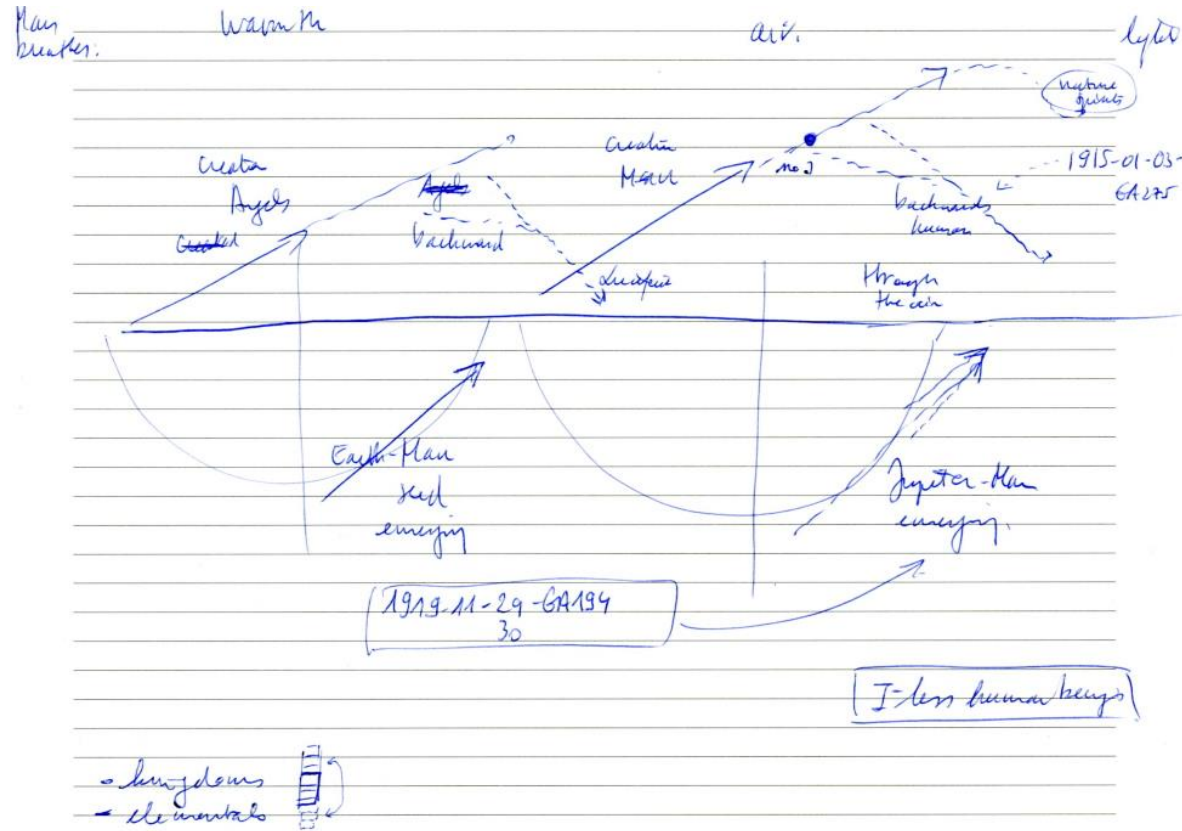 Man warmth air. light
breathes.
nature
spirits
creation
Angels
Created
Angels
backward
Lucifer
creation
Man
no I
1915-01-03-
GA275
backwards
human
through
the air
Earth-Man
seed
emerging
Jupiter-Man
emerging.
1919-11-29-GA194
30
I-less human beings
- kingdoms
- elementals